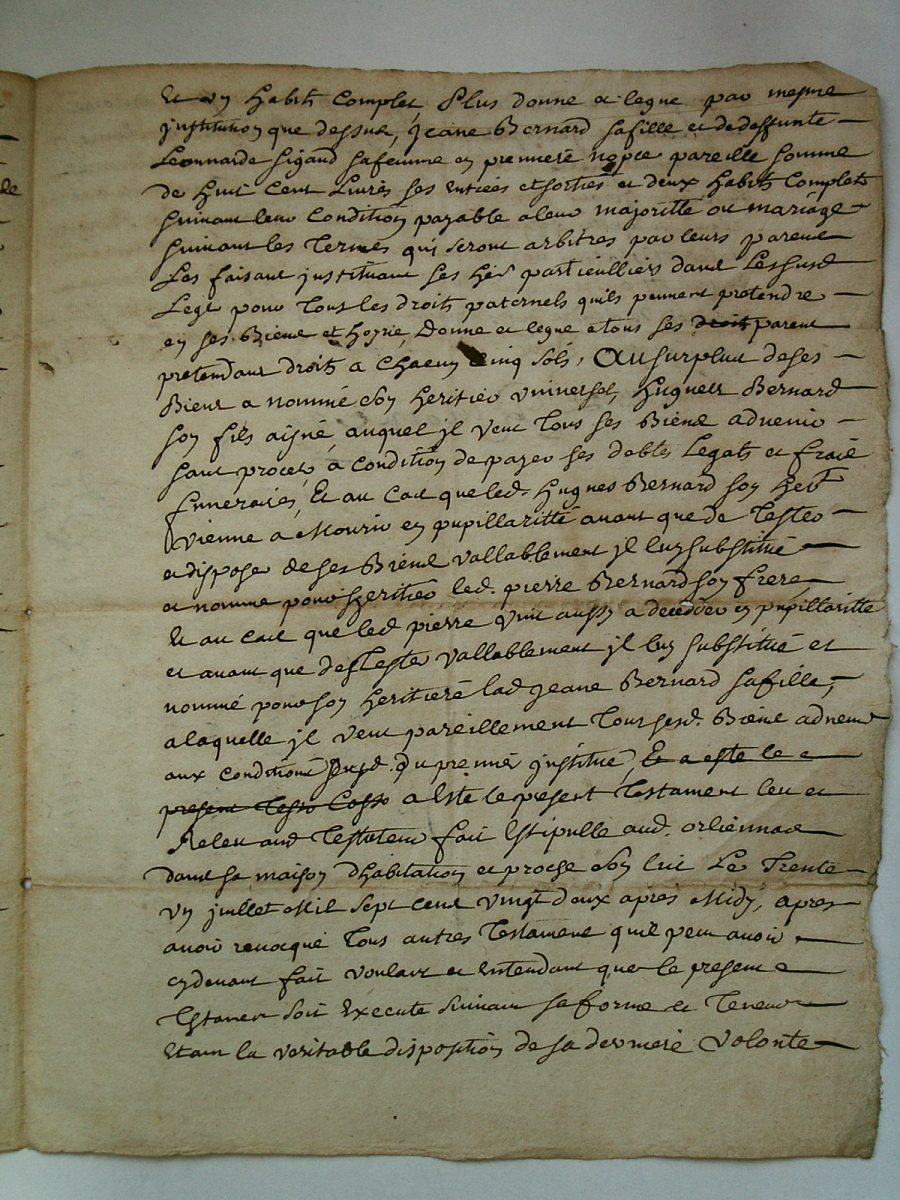 Et un habit complet, Plus donne et legue par mesme
justitution que dessus, jeane Bernard safille et dedeffunte
Leonnarde Sigaud safemme en premiere nopce pareille somme
de huit cent Livres ses entiées et sorties et deux habits complets
suivant leur condition payable aleur majoritté ou mariage
suivant les Termes qui seront arbitres par leurs parent
Les faisant justituant ses her particulliers dans Lessusd
Legt pour Tous les droits paternels quils peuvent pretendre
en ses Biens et hoyrie, Donne et legue a tous ses droit parent
pretendant droits a chacun cinq sols, Au surplus de ses
Biens a nommé son heritier universel, Hugues Bernard
son fils aisné, auquel jl veut Tous ses Biens advenir
sant proces, a condition de payer ses debtes Legats et frais
funeraires, Et au cas que led. Hugues Bernard son her
vienne a Mourir en pupillaritté avant que de Tester
et dispose de ses Biens vallablement jl luy substitue
et nomme pour heritier led. pierre Bernard son frere,
Et au cas que led. pierre vint aussy a decedder en pupillaritte
et avant que de Tester vallablement jl luy substitué et
nommé pour son heritiere lad jeane Bernard safille,
a laquelle jl veut pareillement Tous sesd. Biens advenir
aux conditions susd. du premier justitué, Et a este le
present Testo Casso a Este le present Testament leu et
Releu aud Testateur fait et stipullé aud. orliennas
dans sa maison dhabitation et proche son lict Le Trente
un juillet Mil sept cent vingt deux apres Midy, apres
avoir revocqué Tous autres Testament quil peut avoir
cydevant fait voulant et entendant que le present
Testamen soit executé suivant sa forme et Teneur
Etant la veritable disposition de sa derniere volonte